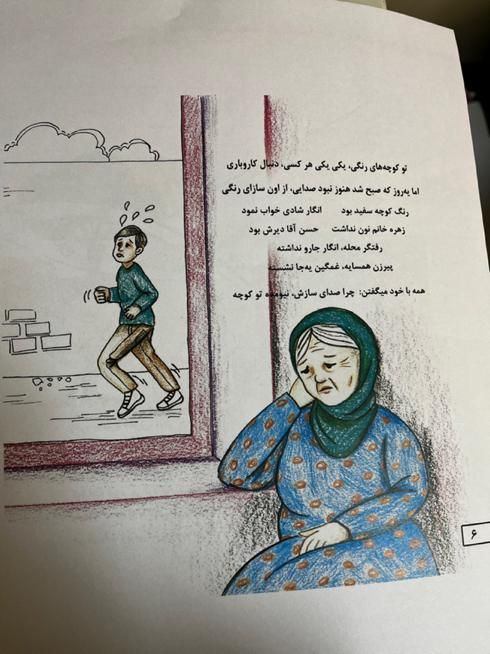 تو کوچه‌های رنگی، یکی یکی هر کسی، دنبال کاروباری
اما یه‌روز که صبح شد هنوز نبود صدایی، از اون سازای رنگی
رنگ کوچه سفید بود انگار شادی خواب نمود
زهره خانم نون نداشت حسن آقا دیرش بود
رفتگر محله، انگار جارو نداشته
پیرزن همسایه، غمگین یه‌جا نشسته
همه با خود میگفتن: چرا صدای سازش، نیومده تو کوچه
۶